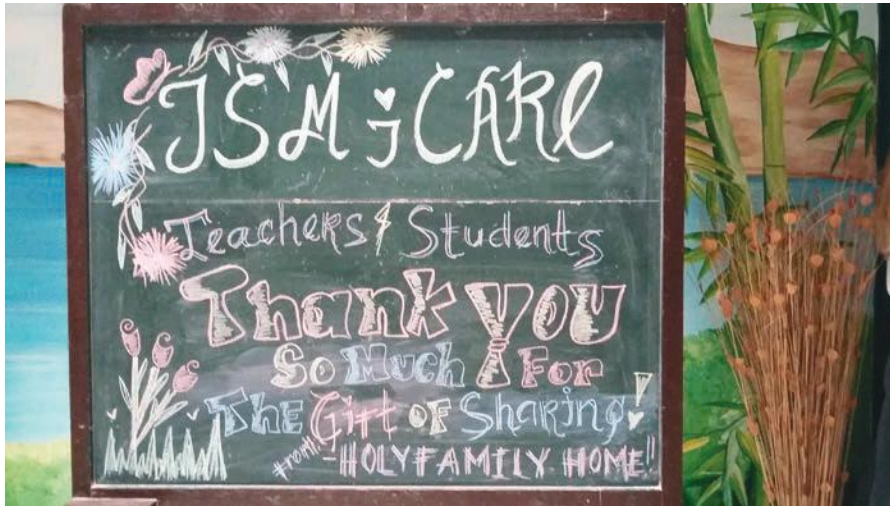 ISM iCARE
Teachers & Students
Thank you
So Much For
The Gift of Sharing!
from: -HOLY FAMILY HOME!!